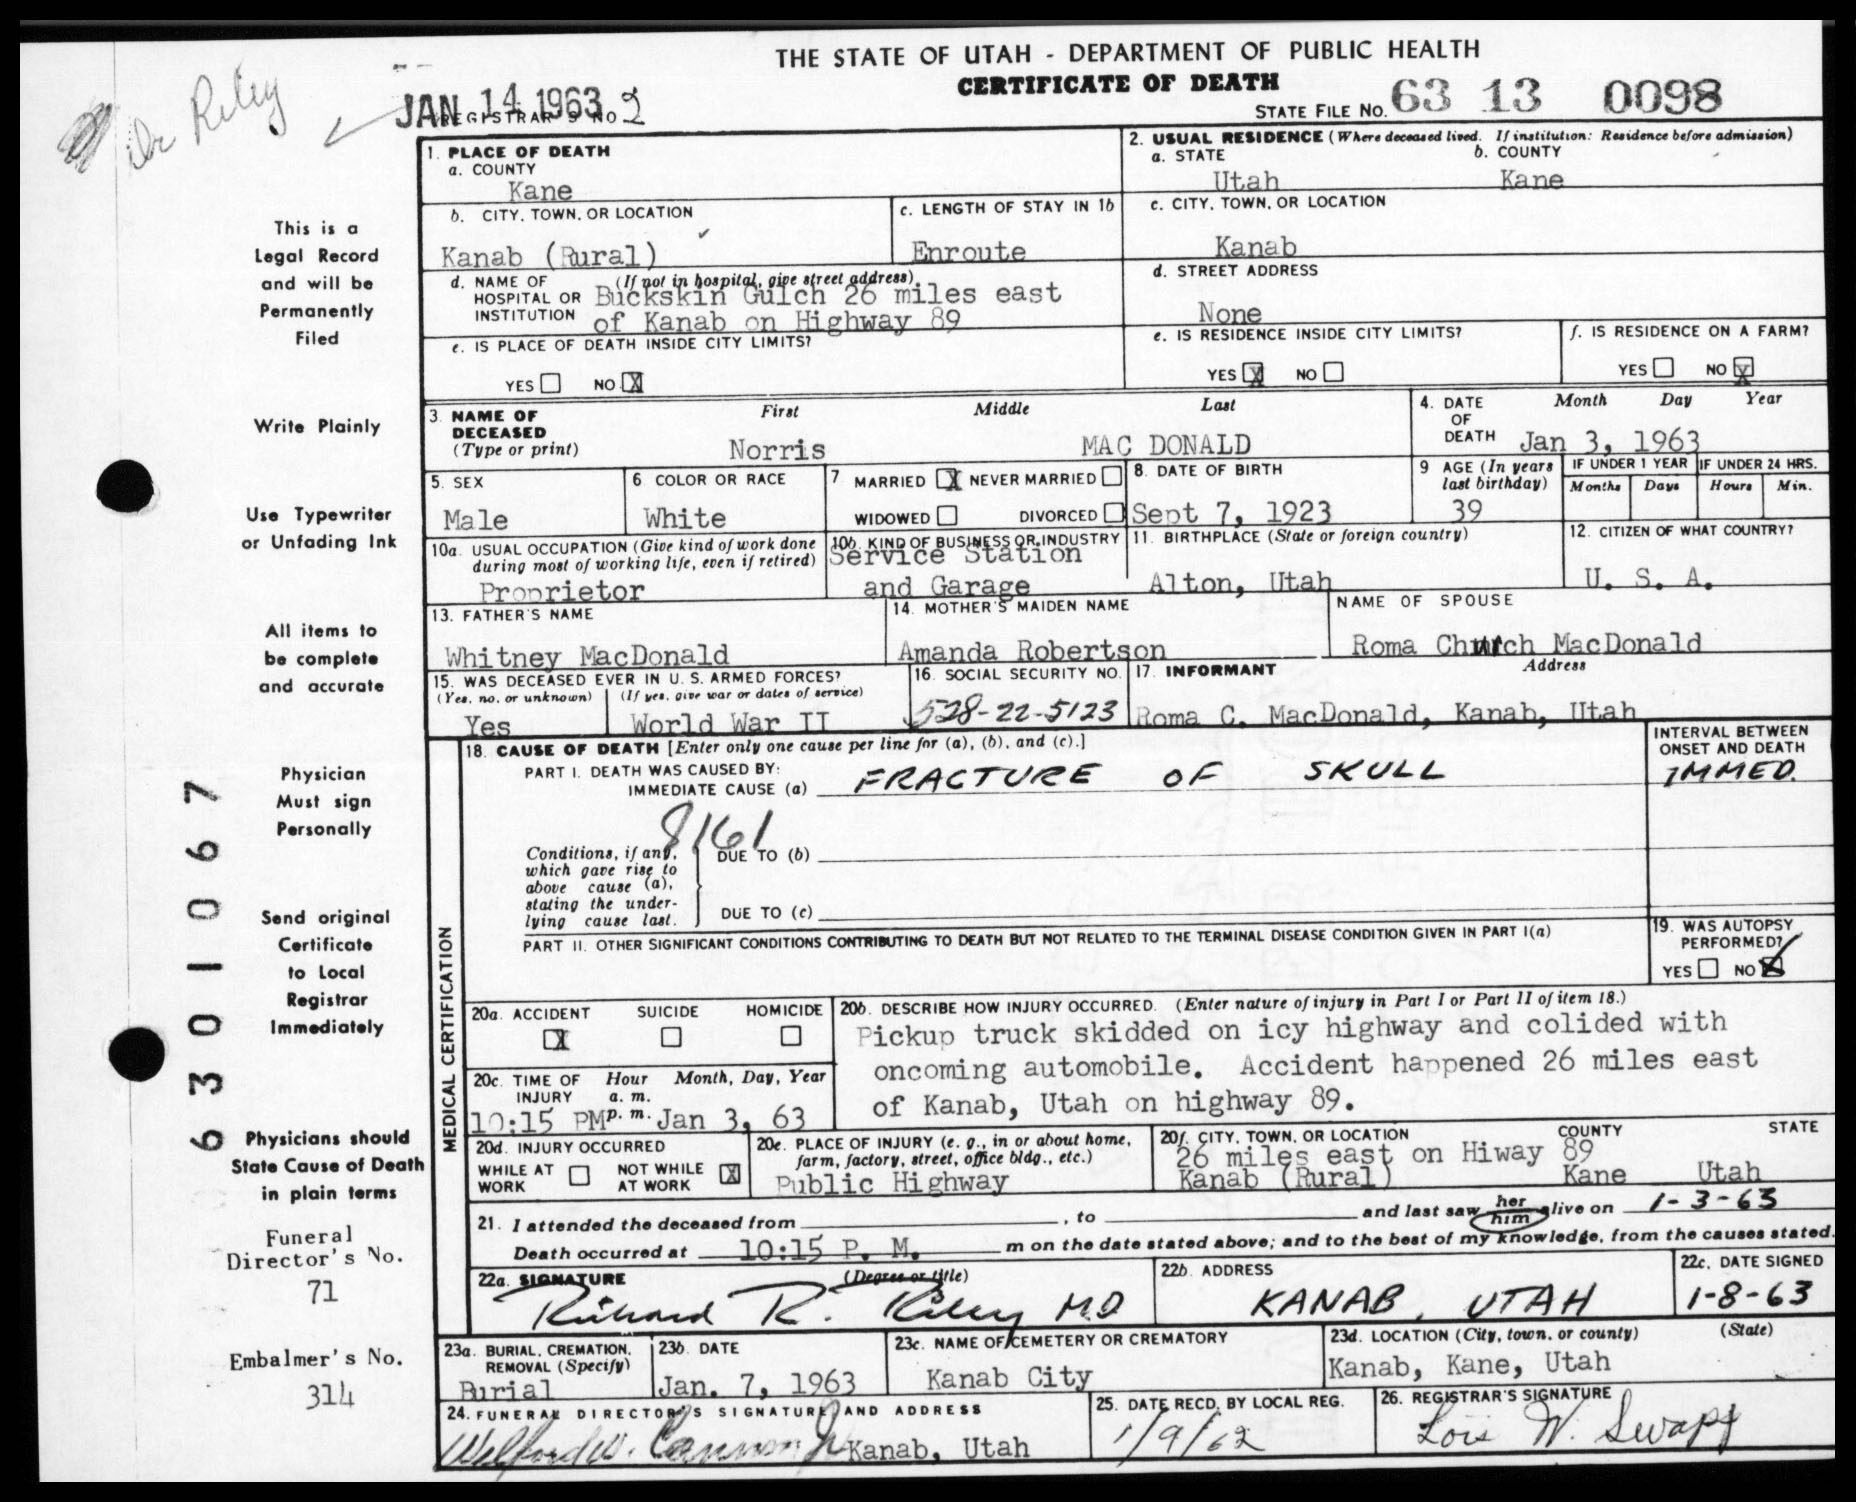 THE STATE OF UTAH - DEPARTMENT OF PUBLIC HEALTH
CERTIFICATE OF DEATH
Dr Riley
JAN 14 1963
REGISTRAR'S NO 2
STATE FILE NO. 63 13 0098
This is a
Legal Record
and will be
Permanently
Filed
Write Plainly
Use Typewriter
or Unfading Ink
All items to
be complete
and accurate
Physician
Must sign
Personally
Send original
Certificate
to Local
Registrar
Immediately
Physicians should
State Cause of Death
in plain terms
Funeral
Director's No.
71
Embalmer's No.
314
6301067
1. PLACE OF DEATH
a. COUNTY
Kane
2. USUAL RESIDENCE (Where deceased lived. If institution: Residence before admission)
a. STATE b. COUNTY
Utah Kane
b. CITY, TOWN, OR LOCATION
Kanab (Rural)
c. LENGTH OF STAY IN 1b
Enroute
c. CITY, TOWN, OR LOCATION
Kanab
d. NAME OF (If not in hospital, give street address)
HOSPITAL OR Buckskin Gulch 26 miles east
INSTITUTION of Kanab on Highway 89
d. STREET ADDRESS
None
e. IS PLACE OF DEATH INSIDE CITY LIMITS?
YES NO X
e. IS RESIDENCE INSIDE CITY LIMITS?
YES X NO
f. IS RESIDENCE ON A FARM?
YES NO X
3. NAME OF First Middle Last
DECEASED
(Type or print) Norris MAC DONALD
4. DATE Month Day Year
OF
DEATH Jan 3, 1963
5. SEX
Male
6 COLOR OR RACE
White
7 MARRIED X NEVER MARRIED
WIDOWED DIVORCED
8. DATE OF BIRTH
Sept 7, 1923
9 AGE (In years
last birthday)
39
IF UNDER 1 YEAR IF UNDER 24 HRS.
Months Days Hours Min.
10a. USUAL OCCUPATION (Give kind of work done
during most of working life, even if retired)
Proprietor
10b. KIND OF BUSINESS OR INDUSTRY
Service Station
and Garage
11. BIRTHPLACE (State or foreign country)
Alton, Utah
12. CITIZEN OF WHAT COUNTRY?
U. S. A.
13. FATHER'S NAME
Whitney MacDonald
14. MOTHER'S MAIDEN NAME
Amanda Robertson
NAME OF SPOUSE
Roma Church MacDonald
15. WAS DECEASED EVER IN U. S. ARMED FORCES?
(Yes, no, or unknown) (If yes, give war or dates of service)
Yes World War II
16. SOCIAL SECURITY NO.
528-22-5123
17. INFORMANT Address
Roma C. MacDonald, Kanab, Utah
MEDICAL CERTIFICATION
18. CAUSE OF DEATH [Enter only one cause per line for (a), (b), and (c).]
PART I. DEATH WAS CAUSED BY:
IMMEDIATE CAUSE (a) FRACTURE OF SKULL
INTERVAL BETWEEN
ONSET AND DEATH
IMMED.
8161
Conditions, if any,
which gave rise to
above cause (a),
stating the under-
lying cause last.
DUE TO (b)
DUE TO (c)
PART II. OTHER SIGNIFICANT CONDITIONS CONTRIBUTING TO DEATH BUT NOT RELATED TO THE TERMINAL DISEASE CONDITION GIVEN IN PART I(a)
19. WAS AUTOPSY
PERFORMED?
YES NO
20a. ACCIDENT SUICIDE HOMICIDE
X
20b. DESCRIBE HOW INJURY OCCURRED. (Enter nature of injury in Part I or Part II of item 18.)
Pickup truck skidded on icy highway and colided with
oncoming automobile. Accident happened 26 miles east
of Kanab, Utah on highway 89.
20c. TIME OF Hour Month, Day, Year
INJURY a. m.
10:15 PM p. m. Jan 3, 63
20d. INJURY OCCURRED
WHILE AT NOT WHILE X
WORK AT WORK
20e. PLACE OF INJURY (e. g., in or about home,
farm, factory, street, office bldg., etc.)
Public Highway
20f. CITY, TOWN, OR LOCATION COUNTY STATE
26 miles east on Hiway 89
Kanab (Rural) Kane Utah
21. I attended the deceased from , to and last saw her him alive on 1-3-63
Death occurred at 10:15 P. M. m on the date stated above; and to the best of my knowledge, from the causes stated.
22a. SIGNATURE (Degree or title)
Richard R. Riley MD
22b. ADDRESS
KANAB, UTAH
22c. DATE SIGNED
1-8-63
23a. BURIAL, CREMATION,
REMOVAL (Specify)
Burial
23b. DATE
Jan. 7, 1963
23c. NAME OF CEMETERY OR CREMATORY
Kanab City
23d. LOCATION (City, town, or county) (State)
Kanab, Kane, Utah
24. FUNERAL DIRECTOR'S SIGNATURE AND ADDRESS
Kanab, Utah
25. DATE RECD. BY LOCAL REG.
1/9/62
26. REGISTRAR'S SIGNATURE
Lois W. Swapp